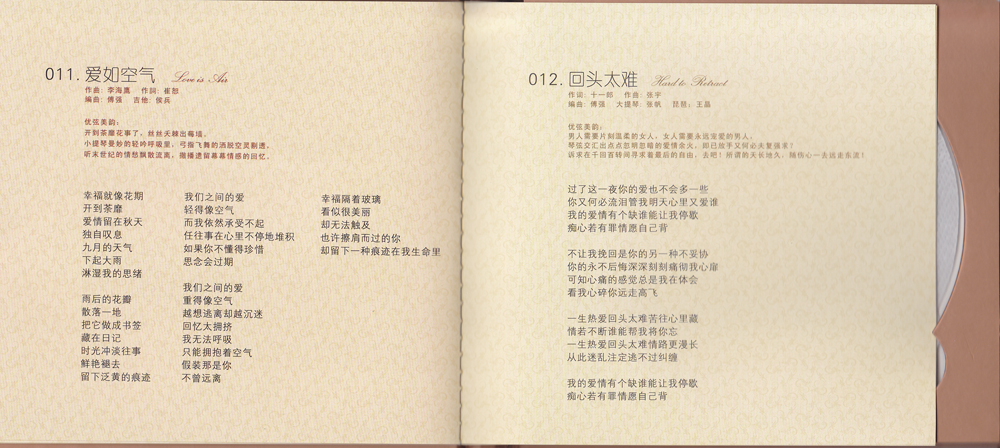 011. 爱如空气 Love is Air
作曲: 李海鹰 作词: 崔恕
编曲: 傅强 吉他: 侯兵
优弦美韵:
开到荼靡花事了，丝丝天棘出莓墙。
小提琴曼妙的轻吟呼吸里，弓指飞舞的洒脱空灵剔透，
听末世纪的情愁飘散流离，撒播遗留幕幕情感的回忆。
幸福就像花期
开到荼靡
爱情留在秋天
独自叹息
九月的天气
下起大雨
淋湿我的思绪
雨后的花瓣
散落一地
把它做成书签
藏在日记
时光冲淡往事
鲜艳褪去
留下泛黄的痕迹
我们之间的爱
轻得像空气
而我依然承受不起
任往事在心里不停地堆积
如果你不懂得珍惜
思念会过期
我们之间的爱
重得像空气
越想逃离却越沉迷
回忆太拥挤
我无法呼吸
只能拥抱着空气
假装那是你
不曾远离
幸福隔着玻璃
看似很美丽
却无法触及
也许擦肩而过的你
却留下一种痕迹在我生命里
012. 回头太难 Hard to Retract
作词: 十一郎 作曲: 张宇
编曲: 傅强 大提琴: 张帆 琵琶: 王晶
优弦美韵:
男人需要片刻温柔的女人，女人需要永远宠爱的男人。
琴弦交汇出点点忽明忽暗的爱情余火，即已放手又何必来复强求？
诉求在千回百转间寻求着最后的自由，去吧！所谓的天长地久，随伤心一去远走东流！
过了这一夜你的爱也不会多一些
你又何必流泪管我明天心里又爱谁
我的爱情有个缺谁能让我停歇
痴心若有罪情愿自己背
不让我挽回是你的另一种不妥协
你的永不后悔深深刻刻痛彻我心扉
可知心痛的感觉总是我在体会
看我心碎你远走高飞
一生热爱回头太难苦往心里藏
情若不断谁能帮我将你忘
一生热爱回头太难情路更漫长
从此迷乱注定逃不过纠缠
我的爱情有个缺谁能让我停歇
痴心若有罪情愿自己背